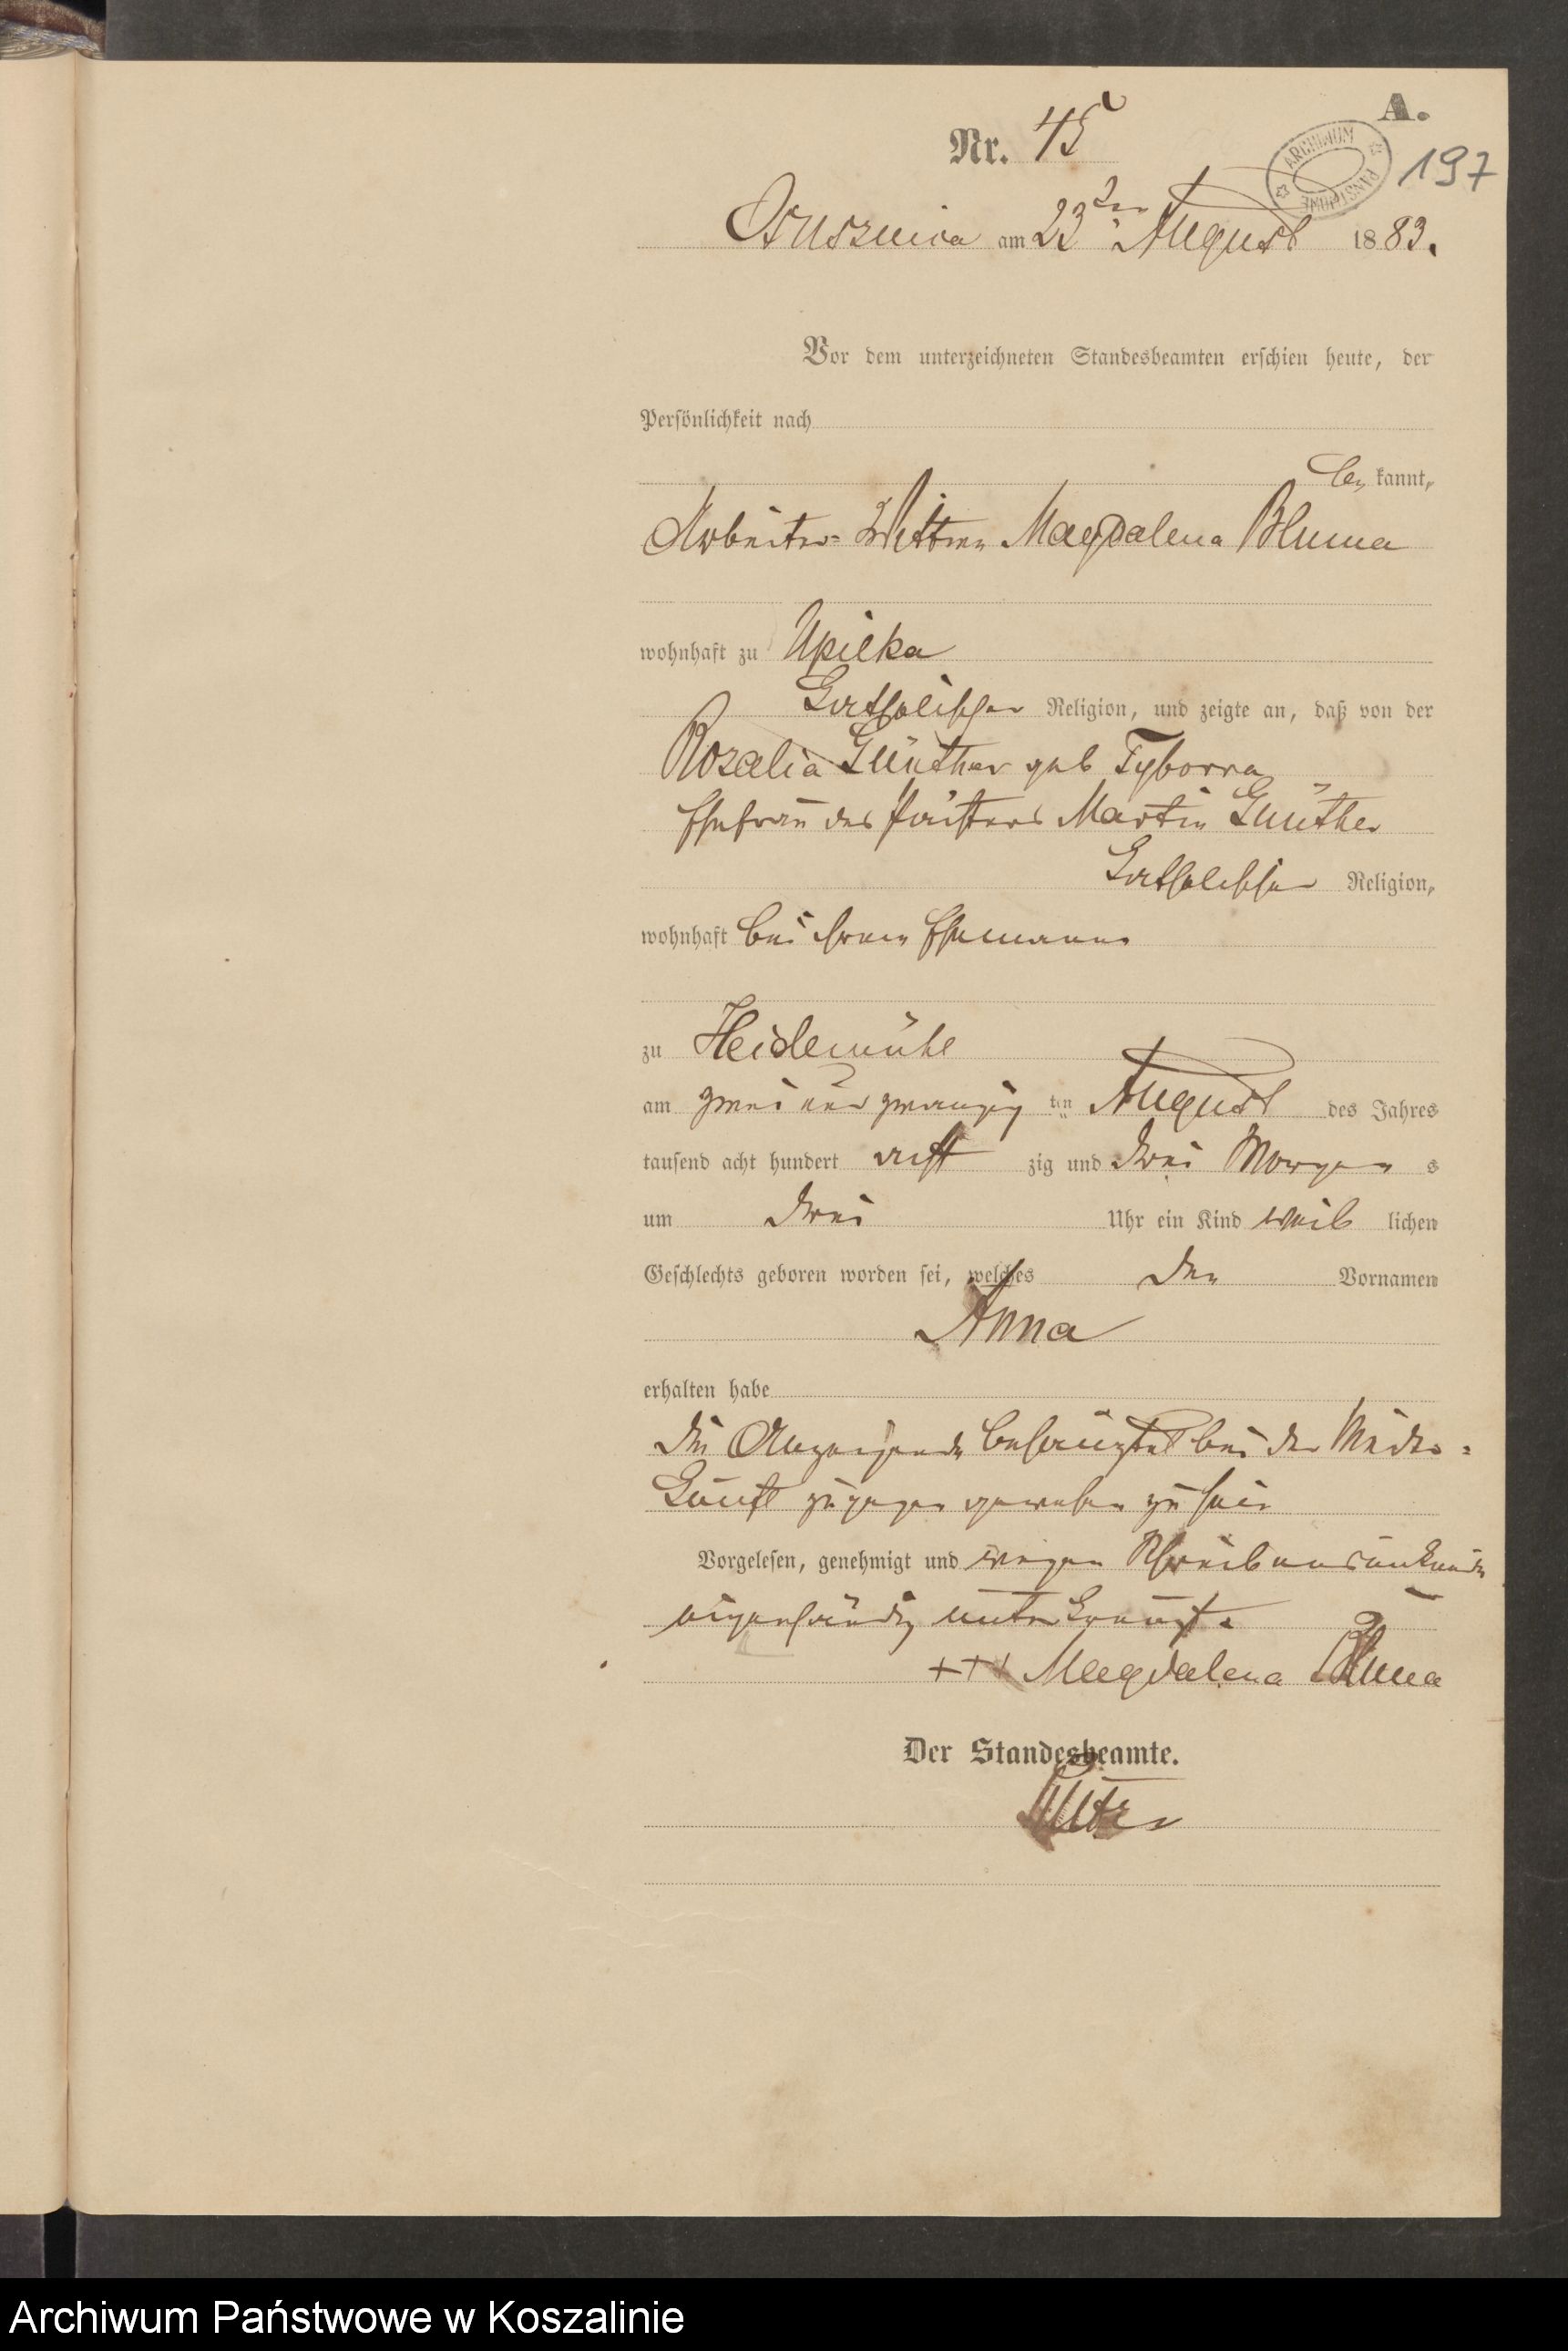 A.
Nr. 45
ARCHIWUM PAŃSTWOWE
197
am 23ten August 1883.
Vor dem unterzeichneten Standesbeamten erschien heute, der
Persönlichkeit nach
be kannt,
Arbeiter-Wittwe Magdalena Bluma
wohnhaft zu Upilka
katholischer Religion, und zeigte an, daß von der
Rozalia Günther geb Tyborra
Ehefrau des Martin Günther
katholischer Religion,
wohnhaft bei ihrem Ehemanne
zu Heidemühl
am zwei und zwanzig ten August des Jahres
tausend acht hundert acht zig und drei Morgens
um drei Uhr ein Kind weib lichen
Geschlechts geboren worden sei, welches den Vornamen
Anna
erhalten habe
Die Anzeigende bei der Nieder-
kunft zugegen gewesen zu sein
Vorgelesen, genehmigt und wegen Schreibensunkunde
eigenhändig unterkreuzt.
+++ Magdalena Bluma
Der Standesbeamte.
Archiwum Państwowe w Koszalinie